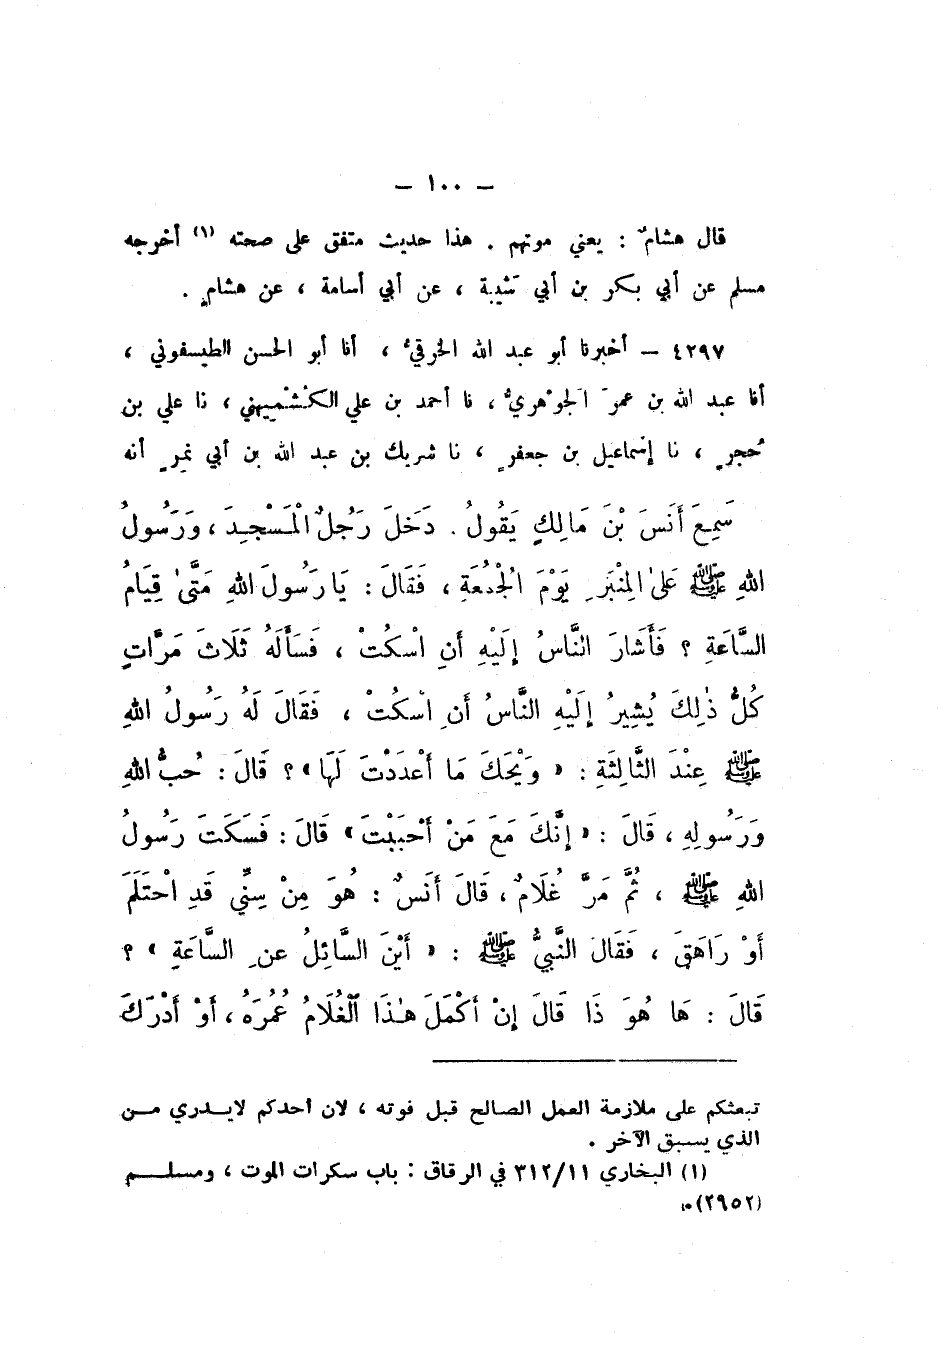 – ١٠٠ –
قال هشامٌ : يعني موتهم . هذا حديث متفق على صحته (١) أخرجه
مسلم عن أبي بكر بن أبي شيبة ، عن أبي أسامة ، عن هشامٍ .
٤٢٩٧ – أخبرنا أبو عبد الله الخرقيُّ ، أنا أبو الحسن الطيسفوني ،
أنا عبد الله بن عمرَ الجوْهريُّ ، نا أحمد بن علي الكُشْمِيهني ، نا علي بن
حُجرٍ ، نا إسْماعيل بن جعفرٍ ، نا شريك بن عبد الله بن أبي نمِرٍ أنه
سَمِعَ أَنَسَ بْنَ مَالِكٍ يَقُولُ . دَخَلَ رَجُلٌ الْمَسْجِدَ ، وَرَسُولُ
اللهِ ﷺ عَلىٰ الْمِنْبَرِ يَوْمَ الْجُمُعَةِ ، فَقَالَ : يَا رَسُولَ اللهِ مَتَّىٰ قِيَامُ
السَّاعَةِ ؟ فَأَشَارَ النَّاسُ إِلَيْهِ أَنِ اسْكُتْ ، فَسَأَلَهُ ثَلَاثَ مَرَّاتٍ
كُلُّ ذٰلِكَ يُشِيرُ إِلَيْهِ النَّاسُ أَنِ اسْكُتْ ، فَقَالَ لَهُ رَسُولُ اللهِ
ﷺ عِنْدَ الثَّالِثَةِ : « وَيْحَكَ مَا أَعْدَدْتَ لَهَا » ؟ قَالَ : حُبُّ اللهِ
وَرَسُولِهِ ، قَالَ : « إِنَّكَ مَعَ مَنْ أَحْبَبْتَ » قَالَ : فَسَكَتَ رَسُولُ
اللهِ ﷺ ، ثُمَّ مَرَّ غُلَامٌ ، قَالَ أَنَسٌ : هُوَ مِنْ سِنِّي قَدِ احْتَلَمَ
أَوْ رَاهَقَ ، فَقَالَ النَّبِيُّ ﷺ : « أَيْنَ السَّائِلُ عنِ السَّاعَةِ » ؟
قَالَ : هَا هُوَ ذَا قَالَ إِنْ أَكْمَلَ هٰذَا الْغُلَامُ عُمُرَهُ ، أَوْ أَدْرَكَ
تبعثكم على ملازمة العمل الصالح قبل فوته ، لان أحدكم لايدري من
الذي يسبق الآخر .
(١) البخاري ٣١٢/١١ في الرقاق : باب سكرات الموت ، ومسلم
(٢٩٥٢)